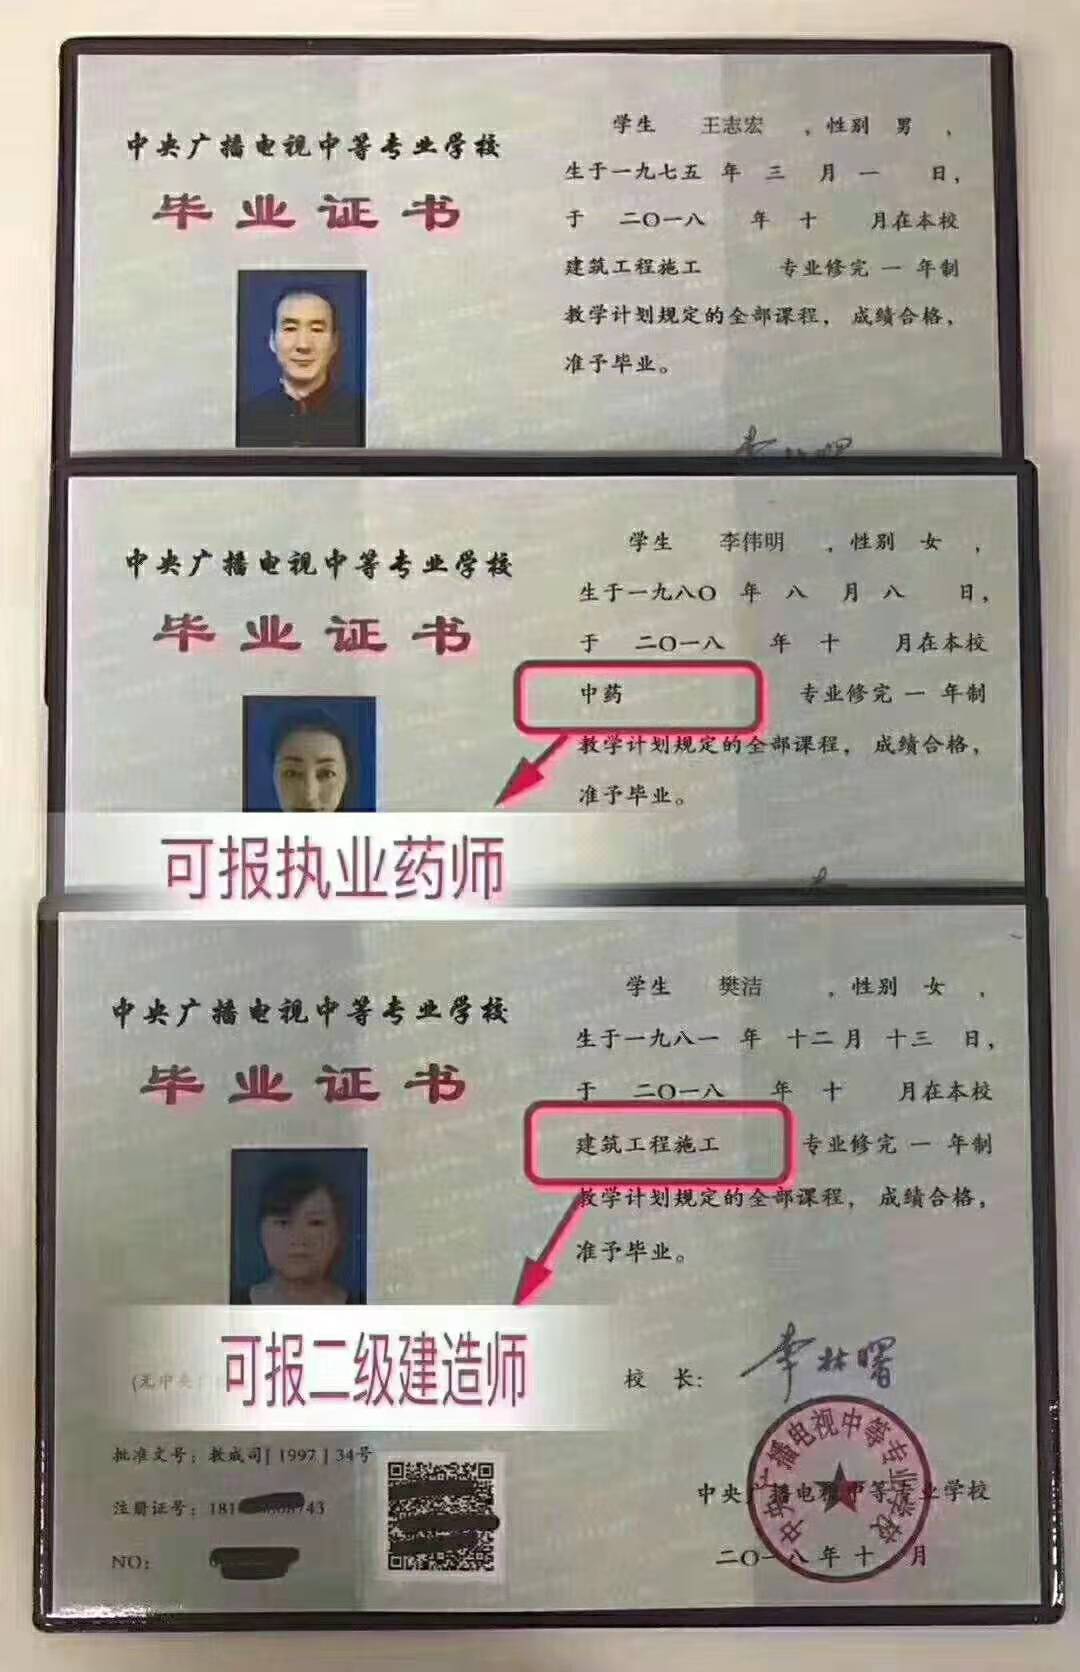 中央广播电视中等专业学校
毕业证书
学生 王志宏 ，性别 男 ，
生于一九七五 年 三 月 一 日，
于 二〇一八 年 十 月在本校
建筑工程施工 专业修完 一 年制
教学计划规定的全部课程，成绩合格，
准予毕业。
中央广播电视中等专业学校
毕业证书
学生 李伟明 ，性别 女 ，
生于一九八〇 年 八 月 八 日，
于 二〇一八 年 十 月在本校
中药 专业修完 一 年制
教学计划规定的全部课程，成绩合格，
准予毕业。
可报执业药师
中央广播电视中等专业学校
毕业证书
学生 樊洁 ，性别 女 ，
生于一九八一 年 十二 月 十三 日，
于 二〇一八 年 十 月在本校
建筑工程施工 专业修完 一 年制
教学计划规定的全部课程，成绩合格，
准予毕业。
可报二级建造师
(无中央
批准文号：教成司[1997]34号
注册证号：181
NO：
校 长：李林曙
中央广播电视中等专业学校
二〇一八 年 十 月
中央广播电视中等专业学校